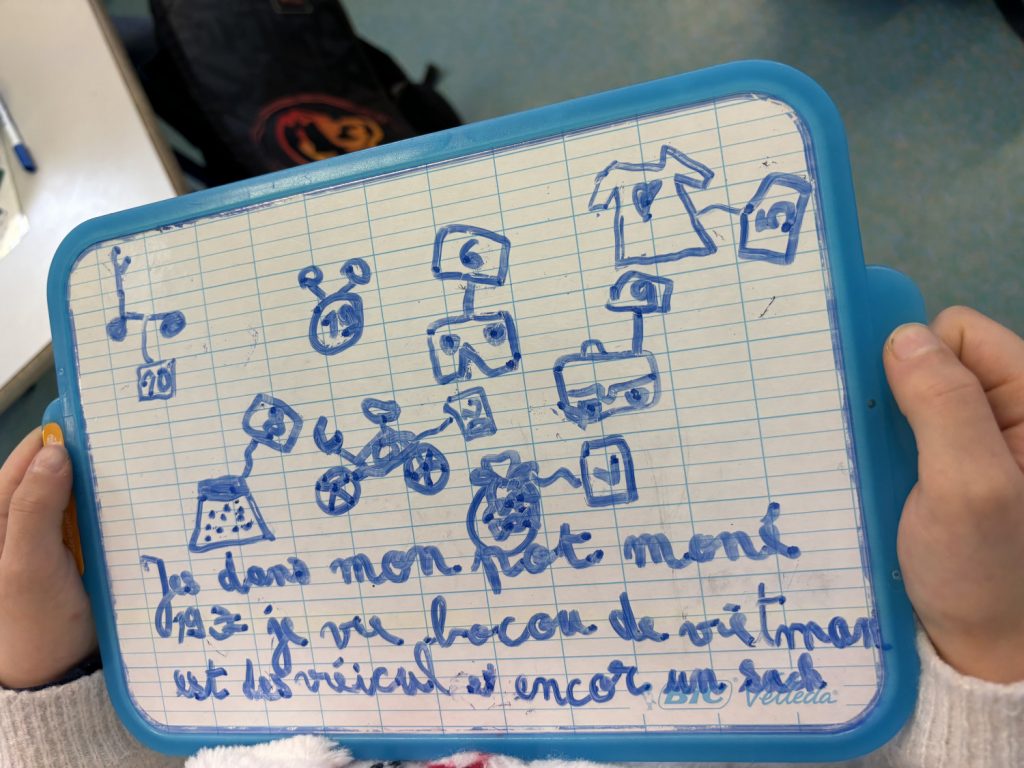 5
6
9
19
10
12
8
Jes dans mon pot moné
193 je vu bocou de viètman
est des viéicul et encor un sach
BIC Velleda